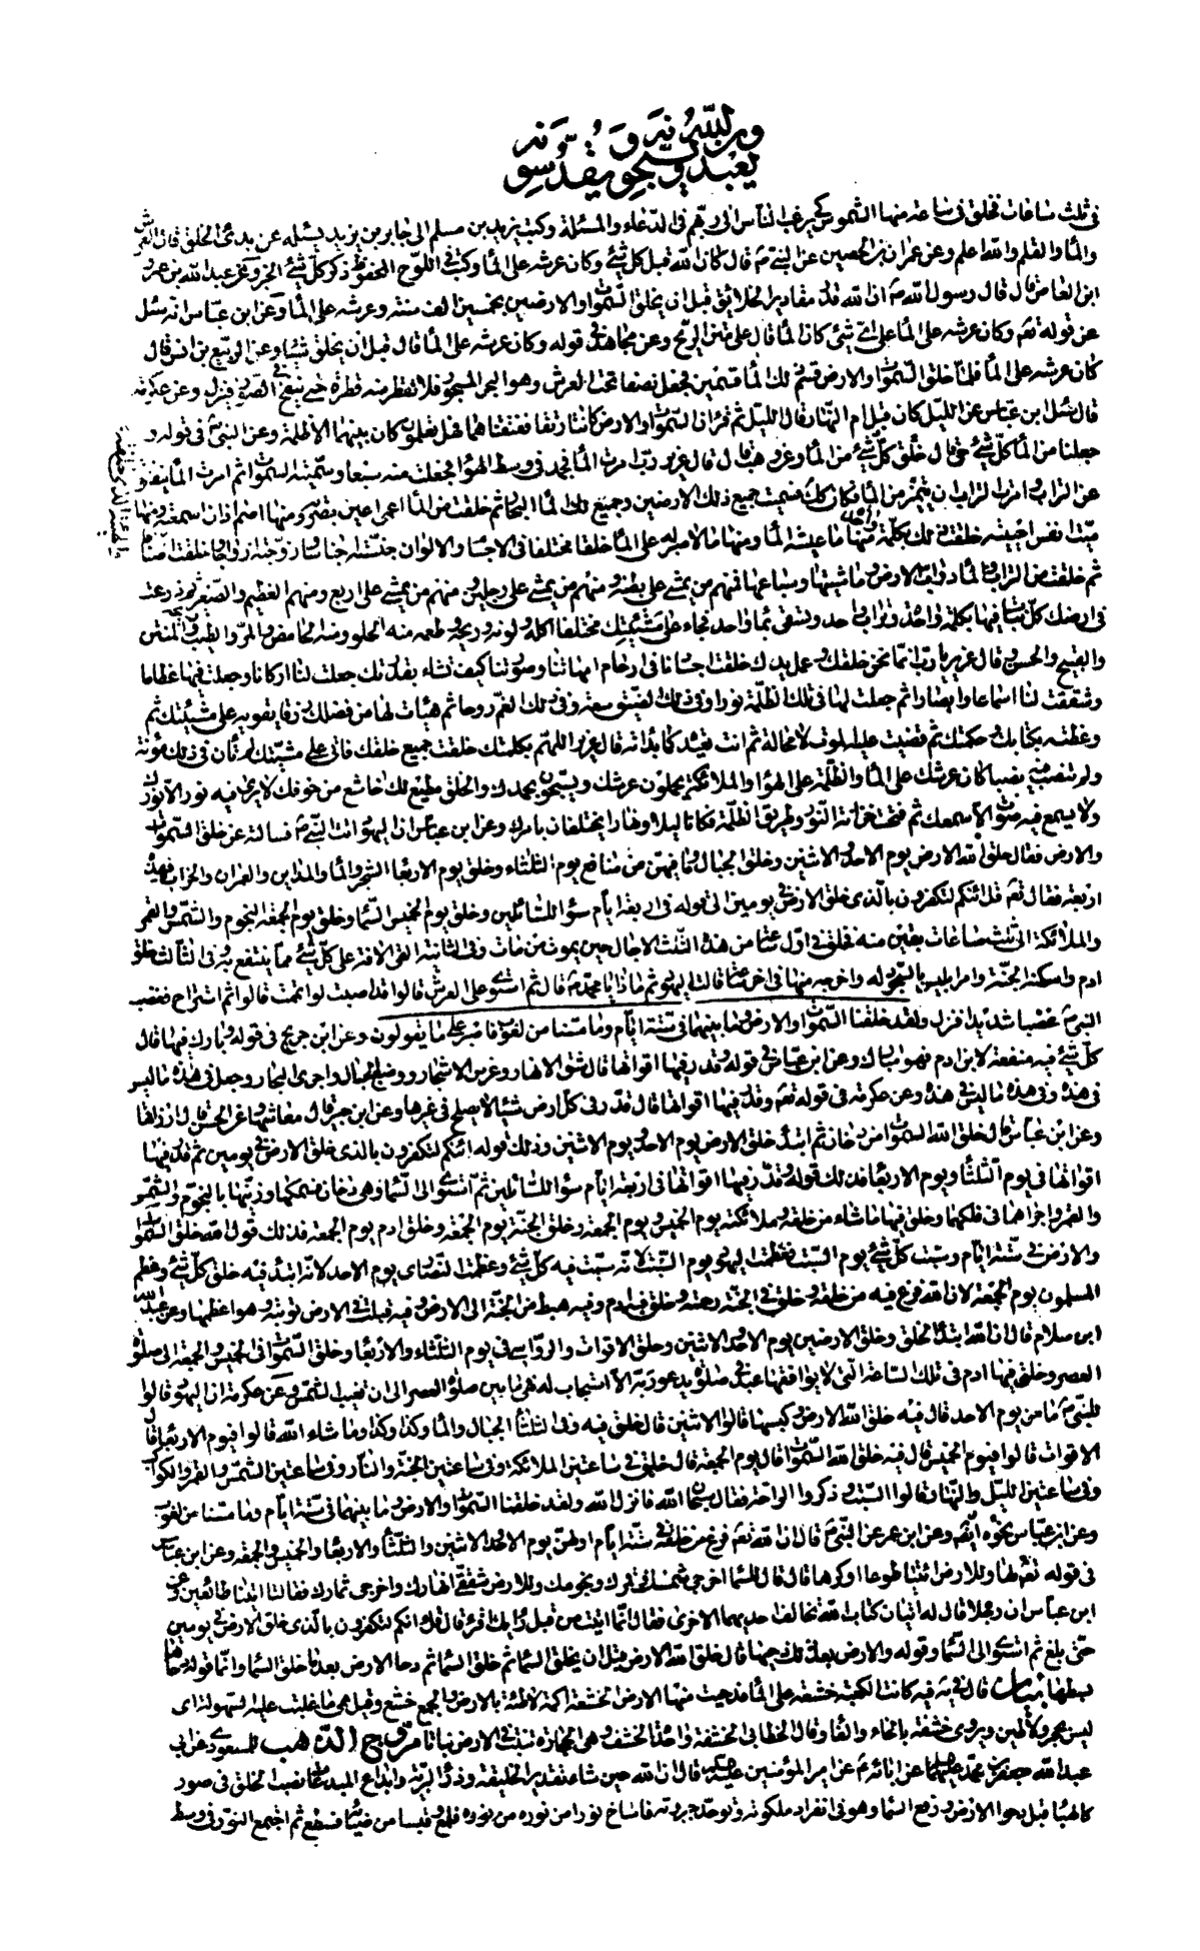 في ثلث ساعات فخلق في ساعة منها الشموس كي يرغب الناس الى ربهم في الدعاء والمسئلة وكتب يزيد بن مسلم الى جابر بن يزيد يسئله عن بدئ الخلق قال العرش
والماء والقلم والله اعلم وعن عمران بن الحصين عن النبي ص قال كان الله قبل كل شئ وكان عرشه على الماء وكتب في اللوح المحفوظ ذكر كل شئ الخبر وعن عبد الله بن عمرو
ابن العاص قال قال رسول الله ص ان الله قدر مقادير الخلائق قبل ان يخلق السموات والارضين بخمسين الف سنة وعرشه على الماء وعن ابن عباس انه سئل
عن قوله تعم وكان عرشه على الماء على اي شئ كان الماء قال على متن الريح وعن مجاهد في قوله وكان عرشه على الماء قال قبل ان يخلق شيئا وعن الربيع بن انس قال
كان عرشه على الماء فلما خلق السموات والارض قسم ذلك الماء قسمين فجعل نصفا تحت العرش وهو البحر المسجور فلا تقطر منه قطرة حتى ينفخ في الصور فينزل وعن عكرمة
قال سئل ابن عباس عن الليل كان قبل ام النهار قال الليل ثم قرأ ان السموات والارض كانتا رتقا ففتقناهما فهل تعلمون كان بينهما الا ظلمة وعن النبي ص في قوله و
جعلنا من الماء كل شئ حي قال خلق كل شئ من الماء وعن وهب قال قال عزير رب امرت الماء فجمد في وسط الهواء فجعلت منه سبعا وسميته السموات ثم امرت الماء ينفتق
عن التراب وامرت التراب ان يتميز من الماء فكان كذلك فسميت جميع ذلك الارضين وجميع ذلك الماء البحار ثم خلقت من الماء اعمى اعين بصرته ومنها اصم اذان اسمعته ومنها
ميت انفس احييته خلقت ذلك بكلمة واحدة منها ما عيشه الماء ومنها ما لا صبر له على الماء خلقا مختلفا في الاجسام والالوان جنسته اجناسا وزوجته ازواجا وخلقت اصنافا
ثم خلقت من التراب والماء دواب الارض وماشيتها وسباعها فمنهم من يمشي على بطنه ومنهم من يمشي على رجلين ومنهم من يمشي على اربع ومنهم العظيم والصغير ثم زرعت
في ارضك كل نبات فيها بكلمة واحدة وتراب واحد وتسقى بماء واحد فجاء على مشيتك مختلفا اكله ولونه وريحه وطعمه منه الحلو ومنه الحامض والمر والطيب ريحه والمنتن
والقبيح والحسن وقال عزير يا رب انما نحن خلقك وعمل يدك خلقت اجسادنا في ارحام امهاتنا وصورتنا كيف تشاء بقدرتك جعلت لنا اركانا وجعلت فيها عظاما
وشققت لنا اسماعا وابصارا ثم جعلت لها في تلك الظلمة نورا وفي ذلك الضيق سعة وفي ذلك الغم روحا ثم هيأت لها من فضلك رزقا يقويه على مشيتك ثم
وعظته بكتابك وحكمتك ثم قضيت عليه الموت لا محالة ثم انت تعيده كما بدأته قال عزير اللهم بكلمتك خلقت جميع خلقك فاتى على مشيتك لم تأن في ذلك مؤنة
ولم تنصب فيه نصبا كان عرشك على الماء والظلمة على الهواء والملائكة يحملون عرشك ويسبحون بحمدك والخلق مطيع لك خاشع من خوفك لا يرى فيه نور الا نورك
ولا يسمع فيه صوت الا سمعك ثم فتحت خزانة النور وطريق الظلمة فكانا ليلا ونهارا يختلفان بامرك وعن ابن عباس ان اليهود اتت النبي ص فسألته عن خلق السموات
والارض فقال خلق الله الارض يوم الاحد والاثنين وخلق الجبال وما فيهن من منافع يوم الثلثاء وخلق يوم الاربعاء الشجر والماء والمداين والعمران والخراب فهذه
اربعة فقال تعم قل ائنكم لتكفرون بالذي خلق الارض في يومين الى قوله في اربعة ايام سواء للسائلين وخلق يوم الخميس السماء وخلق يوم الجمعة النجوم والشمس والقمر
والملائكة الى ثلث ساعات بقين منه فخلق في اول ساعة من هذه الثلث الاجال حين يموت من مات وفي الثانية القى الافة على كل شئ مما ينتفع به وفي الثالثة خلق
ادم واسكنه الجنة وامر ابليس بالسجود له واخرجه منها في اخر ساعة قالت اليهود ثم ماذا يا محمد ص قال ثم استوى على العرش قالوا قد اصبت لو اتممت قالوا ثم استراح فغضب
النبي ص غضبا شديدا فنزل ولقد خلقنا السموات والارض وما بينهما في ستة ايام وما مسنا من لغوب فاصبر على ما يقولون وعن ابن جريج في قوله وبارك فيها قال
كل شئ فيه منفعة لابن ادم فهو مبارك وعن ابن عباس في قوله وقدر فيها اقواتها قال شق الانهار وغرس الاشجار ووضع الجبال واجرى البحار وجعل في هذه ما ليس
في هذه وفي هذه ما ليس في هذه وعن عكرمة في قوله تعم وقدر فيها اقواتها قال قدر في كل ارض شيئا لا يصلح في غيرها وعن ابن جبير قال معاشها وعن الحسن قال ارزاقها
وعن ابن عباس قال خلق الله السموات من دخان ثم ابتدأ خلق الارض يوم الاحد ويوم الاثنين وذلك قوله ائنكم لتكفرون بالذي خلق الارض في يومين ثم قدر فيها
اقواتها في يوم الثلثاء ويوم الاربعاء فذلك قوله وقدر فيها اقواتها في اربعة ايام سواء للسائلين ثم استوى الى السماء وهي دخان فسمكها وزينها بالنجوم والشمس
والقمر واجراهما في فلكهما وخلق فيها ما شاء من خلقه وملائكته يوم الخميس ويوم الجمعة وخلق الجنة يوم الجمعة وخلق ادم يوم الجمعة فذلك قول الله خلق السموات
والارض في ستة ايام وسبت كل شئ يوم السبت فعظمت اليهود يوم السبت لانه سبت فيه كل شئ وعظمت النصارى يوم الاحد لانه ابتدئ فيه خلق كل شئ وعظم
المسلمون يوم الجمعة لان الله فرغ فيه من خلقه وخلق في الجنة رحمته وخلق فيه ادم وفيه هبط من الجنة الى الارض وفيه قبلت في الارض توبته وهو اعظمها وعن عبد الله
ابن سلام قال ان الله ابتدأ الخلق وخلق الارضين يوم الاحد والاثنين وخلق الاقوات والرواسي في يوم الثلثاء والاربعاء وخلق السموات في الخميس والجمعة الى صلوة
العصر وخلق فيها ادم في تلك الساعة التي لا يوافقها عبد في صلوة يدعو ربه الا استجاب له هي ما بين صلوة العصر الى ان تغيب الشمس وعن عكرمة ان اليهود قالوا
للنبي ص ما من يوم الاحد قال فيه خلق الله الارض وكبسها قالوا الاثنين قال خلق فيه وفي الثلثاء الجبال والماء وكذا وكذا وما شاء الله قالوا فيوم الاربعاء قال
الاقوات قالوا فيوم الخميس قال فيه خلق الله السموات قال يوم الجمعة قال خلق في ساعتين الملائكة وفي ساعتين الجنة والنار وفي ساعتين الشمس والقمر والكواكب
وفي ساعتين الليل والنهار قالوا السبت وذكروا الراحة فقال سبحان الله فانزل الله ولقد خلقنا السموات والارض وما بينهما في ستة ايام وما مسنا من لغوب
وعن ابن عباس نحوه ايضا وعن ابن عمر عن النبي ص قال ان الله تعم فرغ من خلقه في ستة ايام اولهن يوم الاحد والاثنين والثلثاء والاربعاء والخميس والجمعة وعن ابن عباس
في قوله تعم فقال لها وللارض ائتيا طوعا او كرها قال قال للسماء اخرجي شمسك وقمرك ونجومك وللارض شققي انهارك واخرجي ثمارك فقالتا اتينا طائعين وعن
ابن عباس ان رجلا قال له ايتان كتاب الله تخالف احديهما الاخرى فقال انما اتيت من قبل رأيك اقرء قال قل ائنكم لتكفرون بالذي خلق الارض في يومين
حتى بلغ ثم استوى الى السماء وقوله والارض بعد ذلك دحيها قال خلق الله الارض قبل ان يخلق السماء ثم خلق السماء ثم دحا الارض بعد ما خلق السماء وانما قوله دحاها
بسطها بيان قال في يه فيه كانت الكعبة خشفة على الماء فدحيت منها الارض الخشفة اكمة لاطئة بالارض والجمع خشع وقيل هي ما غلبت عليه السهولة اي
ليس بحجر ولا طين ويروى خشفة بالخاء والفاء وقال الخطابي الخشفة واحدة الخشف وهي حجارة تنبت في الارض نباتا مروج الذهب للمسعودي عن ابي
عبد الله جعفر بن محمد عليهما السلام عن ابائه ع عن امير المؤمنين عليه السلام قال ان الله حين شاء تقدير الخليقة وذرأ البرية وابداع المبدعات نصب الخلق في صور
كالهباء قبل دحو الارض ورفع السماء وهو في انفراد ملكوته وتوحد جبروته فاساخ نورا من نوره فلمع وقبسا من ضيائه فسطع ثم اجتمع النور في وسط